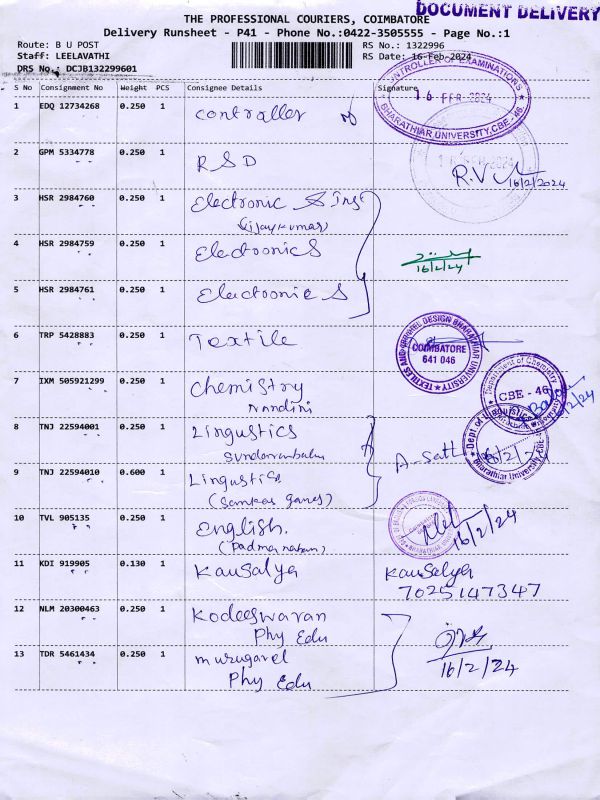 DOCUMENT DELIVERY
THE PROFESSIONAL COURIERS, COIMBATORE
Delivery Runsheet - P41 - Phone No.:0422-3505555 - Page No.:1
Route: B U POST
RS No.: 1322996
Staff: LEELAVATHI
RS Date: 16-Feb-2024
DRS No.: DCJB132299601
CONTROLLER OF EXAMINATIONS
16 FEB 2024
BHARATHIAR UNIVERSITY, CBE - 46.
S No Consignment No Weight PCS Consignee Details Signature
1 EDQ 12734268 0.250 1 Controller
2 GPM 5334778 0.250 1 RSD
R.V
16/2/2024
3 HSR 2984760 0.250 1 Electronic & Ins
(Vijaykumar)
4 HSR 2984759 0.250 1 Electronics
16/2/24
5 HSR 2984761 0.250 1 Electronics
6 TRP 5428883 0.250 1 Textile
TEXTILES AND APPAREL DESIGN BHARATHIAR UNIVERSITY
COIMBATORE
641 046
7 IXM 505921299 0.250 1 Chemistry
Nandini
Department of Chemistry
CBE - 46
8 TNJ 22594001 0.250 1 Lingustics
Dept of Linguistics
Bharathiar University, CBE
9 TNJ 22594010 0.600 1 Lingustics
10 TVL 905135 0.250 1 English.
16/2/24
11 KDI 919905 0.130 1 Kausalya Kausalya
7025147347
12 NLM 20300463 0.250 1 Kodeeswaran
Phy Edu
13 TDR 5461434 0.250 1 murugavel
16/2/24
Phy Edu